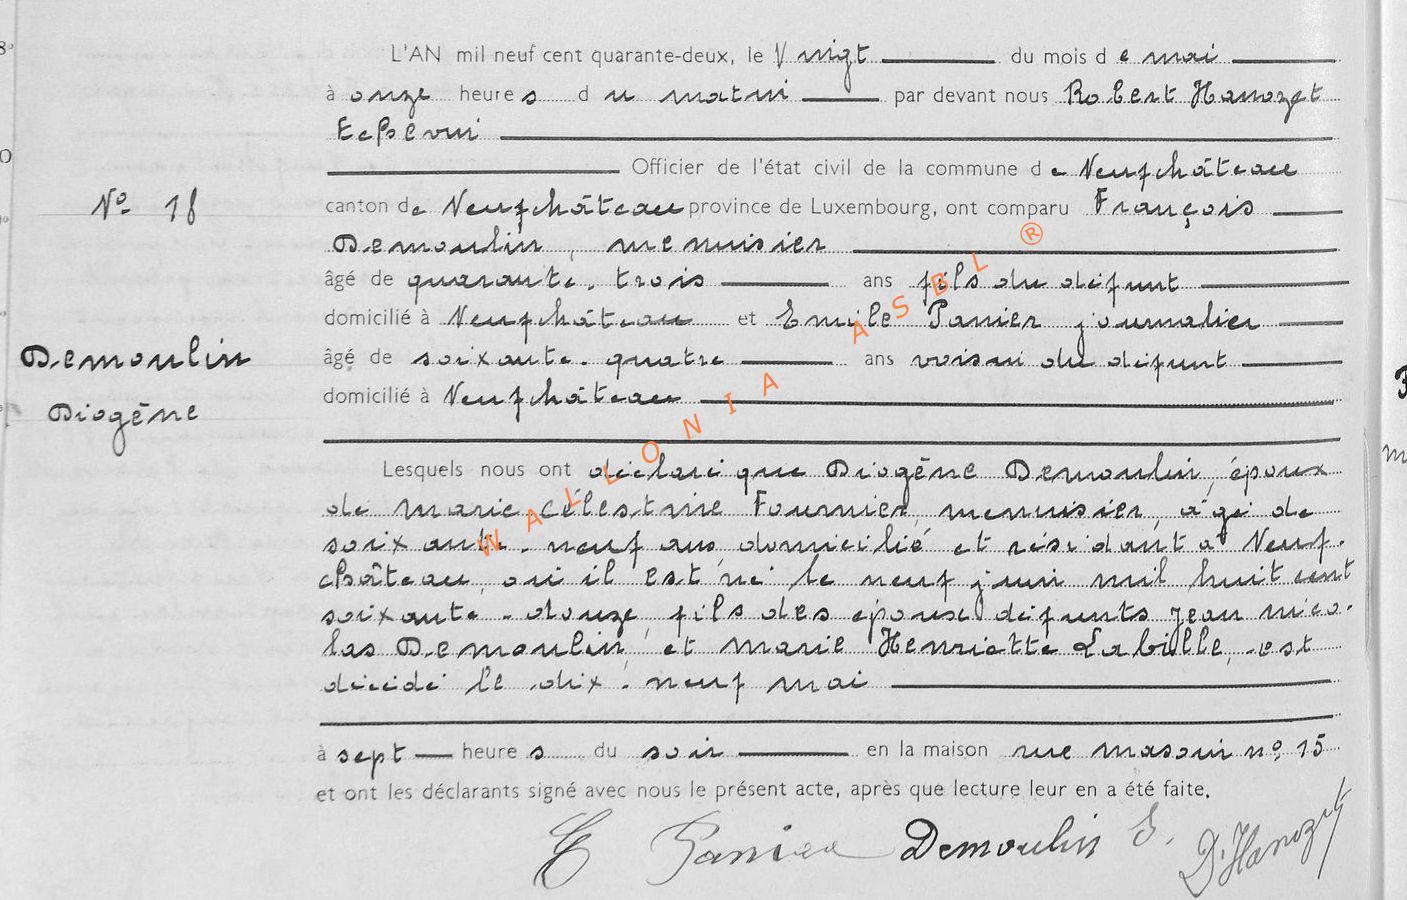 L'AN mil neuf cent quarante-deux, le Vingt du mois de mai
à onze heures du matin par devant nous Robert Hanozet
Echevin
Officier de l'état civil de la commune de Neufchâteau
N° 18
canton de Neufchâteau province de Luxembourg, ont comparu François
Demoulin, menuisier
âgé de quarante-trois ans fils du défunt
domicilié à Neufchâteau et Emile Panier journalier
Demoulin
Diogène
âgé de soixante-quatre ans voisin du défunt
domicilié à Neufchâteau
Lesquels nous ont déclaré que Diogène Demoulin, époux
de marie Célestine Fournier, menuisier, âgé de
soixante-neuf ans domicilié et résidant à Neuf-
château, où il est né le neuf juin mil huit cent
soixante-douze, fils des époux défunts Jean Nico-
las Demoulin, et marie Henriette Labille, est
décédé le dix-neuf mai
à sept heures du soir en la maison rue masoin n° 15
et ont les déclarants signé avec nous le présent acte, après que lecture leur en a été faite.
E Panier Demoulin R. Hanozet
WALLONIA ASBL ®